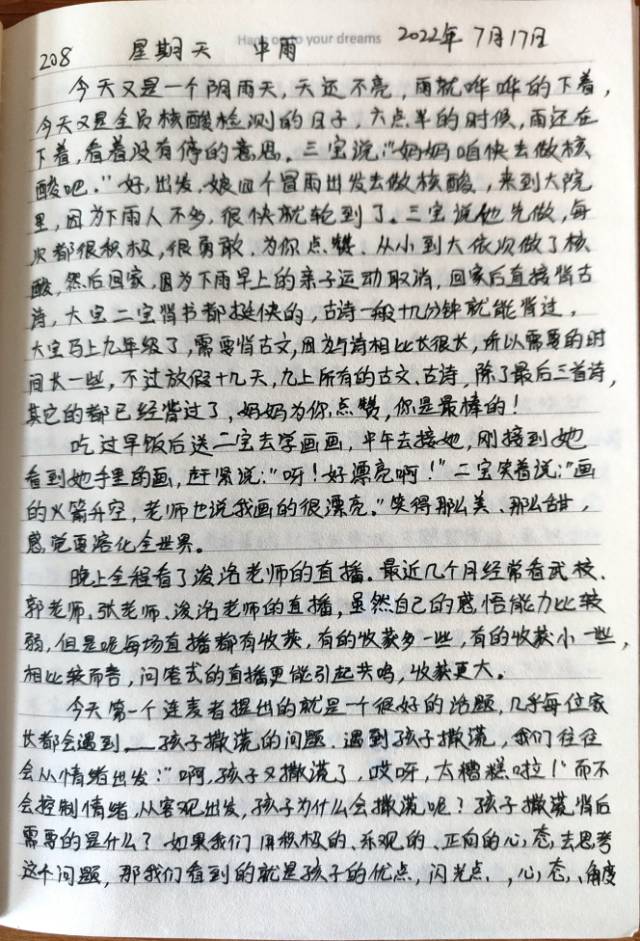 Hang on to your dreams
208 星期天 中雨 2022年7月17日
今天又是一个阴雨天,天还不亮,雨就哗哗的下着,
今天又是全员核酸检测的日子,六点半的时候,雨还在
下着,看着没有停的意思。三宝说:“妈妈咱快去做核
酸吧。”好,出发,娘四个冒雨出发去做核酸,来到大院
里,因为下雨人不多,很快就轮到了。三宝说他先做,每
次都很积极,很勇敢,为你点赞,从小到大依次做了核
酸,然后回家,因为下雨早上的亲子运动取消,回家后直接背古
诗,大宝二宝背书都挺快的,古诗一般十几分钟就能背过,
大宝马上九年级了,需要背古文,因为与诗相比长很长,所以需要的时
间长一些,不过放假十九天,九上所有的古文、古诗,除了最后三首诗,
其它的都已经背过了,妈妈为你点赞,你是最棒的!
吃过早饭后送二宝去学画画,中午去接她,刚接到她
看到她手里的画,赶紧说:“呀!好漂亮啊!”二宝笑着说:“画
的火箭升空,老师也说我画的很漂亮。”笑得那么美、那么甜,
感觉要溶化全世界。
晚上全程看了浚洺老师的直播。最近几个月经常看武校、
郭老师、张老师、浚洺老师的直播,虽然自己的感悟能力比较
弱,但是呢每场直播都有收获,有的收获多一些,有的收获小一些,
相比较而言,问答式的直播更能引起共鸣,收获更大。
今天第一个连麦者提出的就是一个很好的话题,几乎每位家
长都会遇到——孩子撒谎的问题。遇到孩子撒谎,我们往往
会从情绪出发:“啊,孩子又撒谎了,哎呀,太糟糕啦!”而不
会控制情绪,从客观出发,孩子为什么会撒谎呢?孩子撒谎背后
需要的是什么?如果我们用积极的、乐观的、正向的心态去思考
这个问题,那我们看到的就是孩子的优点,闪光点,,心态、角度